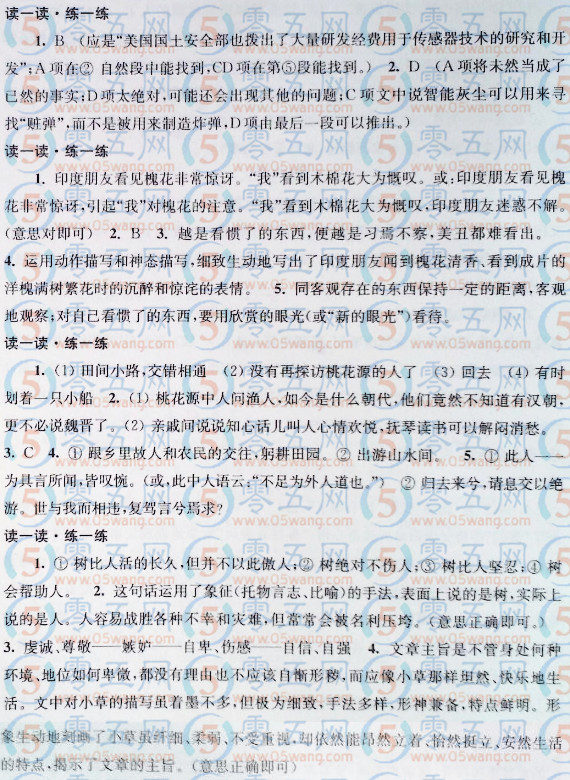 读一读·练一练
1. B (应是“美国国土安全部也拨出了大量研发经费用于传感器技术的研究和开
发”;A项在② 自然段中能找到;CD项在第⑤段能找到。) 2. D (A项将未然当成了
已然的事实;D项太绝对,可能还会出现其他的问题;C项文中说智能灰尘可以用来寻
找“赃弹”,而不是被用来制造炸弹,D项由最后一段可以推出。)
读一读·练一练
1. 印度朋友看见槐花非常惊讶。“我”看到木棉花大为慨叹。或:印度朋友看见槐
花非常惊讶,引起“我”对槐花的注意。“我”看到木棉花大为慨叹,印度朋友迷惑不解。
(意思对即可) 2. B 3. 越是看惯了的东西,便越是习焉不察,美丑都难看出。
4. 运用动作描写和神态描写,细致生动地写出了印度朋友闻到槐花清香、看到成片的
洋槐满树繁花时的沉醉和惊诧的表情。 5. 同客观存在的东西保持一定的距离,客观
地观察;对自己看惯了的东西,要用欣赏的眼光(或“新的眼光”)看待。
读一读·练一练
1. (1) 田间小路,交错相通 (2) 没有再探访桃花源的人了 (3) 回去 (4) 有时
划着一只小船 2. (1) 桃花源中人问渔人,如今是什么朝代,他们竟然不知道有汉朝,
更不必说魏晋了。(2) 亲戚间说说知心话儿叫人心情欢悦,抚琴读书可以解闷消愁。
3. C 4. ① 跟乡里故人和农民的交往,躬耕田园。② 出游山水间。 5. ① 此人一一
为具言所闻,皆叹惋。(或,此中人语云:“不足为外人道也。”) ② 归去来兮,请息交以绝
游。世与我而相违,复驾言兮焉求?
读一读·练一练
1. ① 树比人活的长久,但并不以此傲人;② 树绝对不伤人;③ 树比人坚忍;④ 树
会帮助人。 2. 这句话运用了象征(托物言志、比喻)的手法,表面上说的是树,实际上
说的是人。人容易战胜各种不幸和灾难,但常常会被名利压垮。(意思正确即可。)
3. 虔诚、尊敬——嫉妒——自卑、伤感——自信、自强 4. 文章主旨是不管身处何种
环境、地位如何卑微,都没有理由也不应该自惭形秽,而应像小草那样坦然、快乐地生
活。文中对小草的描写虽着墨不多,但极为细致,手法多样,形神兼备,特点鲜明。形
象生动地刻画了小草虽纤细、柔弱、不受重视,却依然能昂然立着、怡然挺立、安然生活
的特点,揭示了文章的主旨。(意思正确即可)
零五网
www.05wang.com